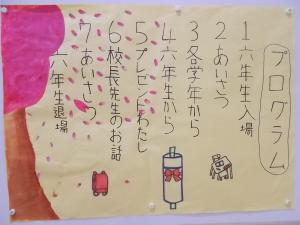 プログラム
1 六年生入場
2 あいさつ
3 各学年から
4 六年生から
5 プレゼントわたし
6 校長先生のお話
7 あいさつ
六年生退場